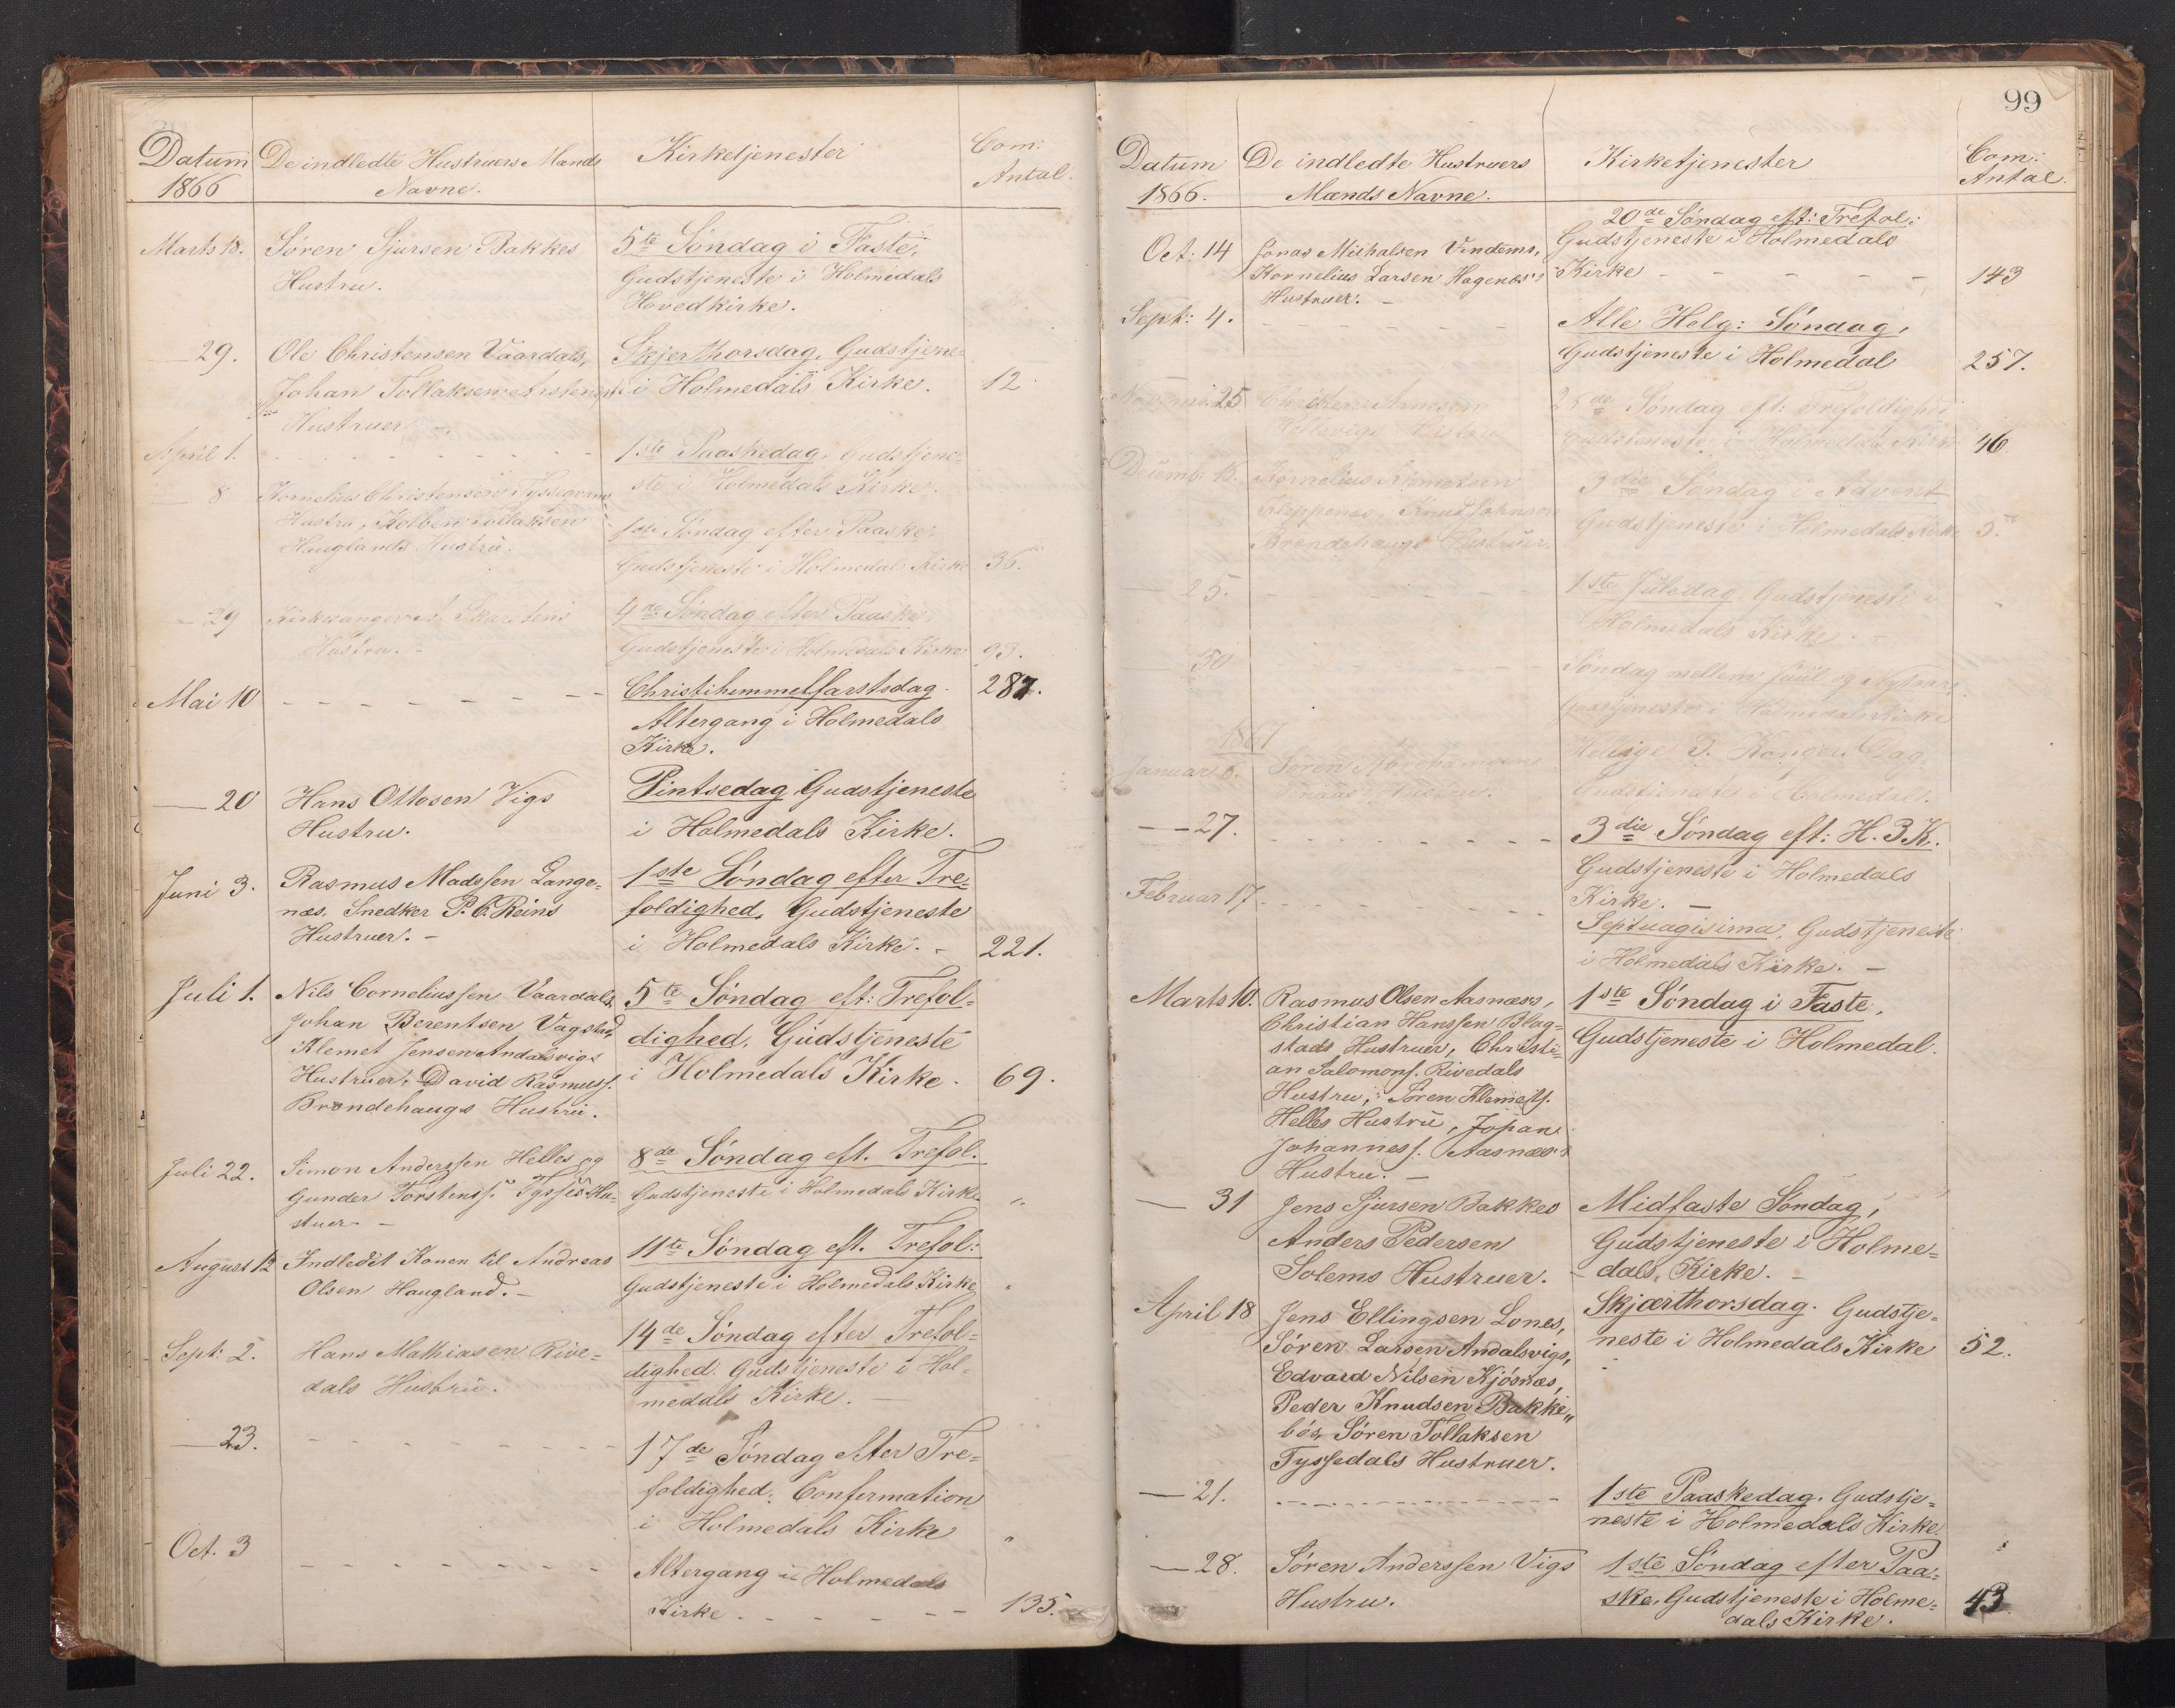 Datum
1866
De indledte Hustruers Mands
Navne.
Kirketjenester
Com:
Antal.
Marts 18.
Søren Sjursen Bakkes
Hustru.
5te Søndag i Faste,
Gudstjeneste i Holmedals
Hovedkirke.
— 29.
Ole Christensen Vaardals,
Johan Tollaksen
Hustruer
Skjerthorsdag, Gudstjene=
i Holmedals Kirke.
12
April 1.
1ste Paaskedag, Gudstjene=
ste i Holmedals Kirke.
— 8
Kornelius Christensen
Hustru, Kolben Tollaksen
Hauglands Hustru.
1ste Søndag efter Paaske
Gudstjeneste i Holmedals Kirke
36.
— 29
Kirkesanger Skarstens
Hustru. -
4de Søndag efter Paaske
Gudstjeneste i Holmedals Kirke
93.
Mai 10
Christihimmelfartsdag.
Altergang i Holmedals
Kirke.
287.
— 20
Hans Ottosen Vigs
Hustru.
Pintsedag Gudstjeneste
i Holmedals Kirke.
Juni 3.
Rasmus Madssen Lange=
næs, Snedker P. C. Reins
Hustruer. -
1ste Søndag efter Tre=
foldighed, Gudstjeneste
i Holmedals Kirke. -
221.
Juli 1.
Nils Corneliussen Vaardals,
Johan Berentsen Vagstad,
Klemet Jensen Andalsvigs
Hustruer, David Rasmuss.
Brendehaugs Hustru.
5te Søndag eft: Trefol=
dighed, Gudstjeneste
i Holmedals Kirke.
69.
Juli 22.
Simon Anderssen Helles og
Gunder Torstenss. Tysses Hu=
struer -
8de Søndag eft. Trefol.
Gudstjeneste i Holmedals Kirke
"
August 12
Indledet Konen til Andreas
Olsen Haugland. -
11te Søndag eft. Trefol:
Gudstjeneste i Holmedals Kirke
"
Sept: 2.
Hans Mathiasen Rive=
dals Hustru.
14de Søndag efter Trefol=
dighed. Gudstjeneste i Hol=
medals Kirke. —
— 23.
17de Søndag efter Tre=
foldighed. Confirmation
i Holmedals Kirke
"
Oct. 3
Altergang i Holmedals
Kirke
135.
99
Datum
1866.
De indledte Hustruers
Mands Navne.
Kirketjenester
Com:
Antal.
Oct: 14
Jonas Michalsen Vindems,
Kornelius Larsen Hagenes
Hustruer. -
20de Søndag eft: Trefol:
Gudstjeneste i Holmedals
Kirke
143
Sept: 4.
Alle Helg: Søndag,
Gudstjeneste i Holmedal
257.
Novemb. 25
Hustru
25de Søndag eft: Trefoldighed
Gudstjeneste i Holmedals Kirke
46
Decemb. 16.
Kornelius Klemetsen
Klyppenæs, Knud Johnsen
Brendehaugs Hustruer.
3die Søndag i Advent
Gudstjeneste i Holmedals Kirke
5.
— 25.
1ste Juledag. Gudstjeneste i
Holmedals Kirke.
— 30
Søndag mellem Juul og Nytaar
Gudstjeneste i Holmedals Kirke
1867
Januar 6.
Søren Abrahamsen
Hellige 3. Kongers Dag,
Gudstjeneste i Holmedals.
— 27.
3die Søndag eft: H. 3 K.
Gudstjeneste i Holmedals
Kirke. —
Februar 17.
Septuagisima, Gudstjeneste
i Holmedals Kirke. —
Marts 10.
Rasmus Olsen Aasnæss,
Christian Hanssen Blag=
stads Hustruer, Christi=
an Salomons. Rivedals
Hustru, Søren Klemets.
Helles Hustru, Johan
Johanness. Aasnæss
Hustru. —
1ste Søndag i Faste,
Gudstjeneste i Holmedal.
— 31
Jens Sjursen Bakkes
Anders Pedersen
Solems Hustruer.
Midfaste Søndag,
Gudstjeneste i Holme=
dals Kirke. -
April 18
Jens Ellingsen Lones,
Søren Larsen Andalsvigs,
Edvard Nilsen Kjøsnæs,
Peder Knudsen Bakke„
bøs, Søren Tollaksen
Tyssedals Hustruer.
Skjærthorsdag. Gudstje=
neste i Holmedals Kirke
52.
— 21.
1ste Paaskedag. Gudstje=
neste i Holmedals Kirke.
— 28.
Søren Anderssen Vigs
Hustru.
1ste Søndag efter Paa=
ske, Gudstjeneste i Holme=
dals Kirke.
43